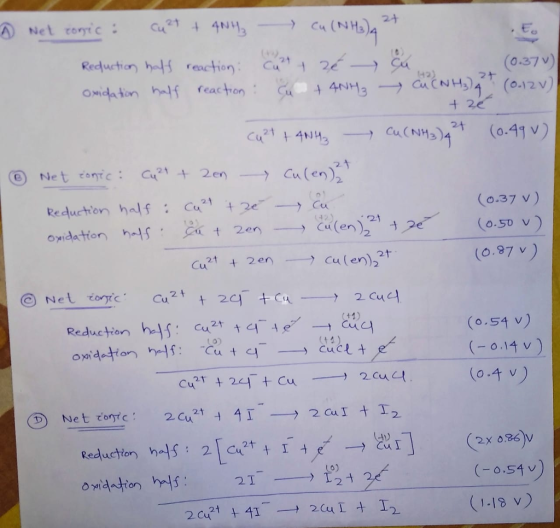 (A) Net ionic : Cu²⁺ + 4NH₃ ⟶ Cu(NH₃)₄²⁺ . E₀
Reduction half reaction: (+2) Cu²⁺ + 2e⁻ ⟶ (0) Cu (0.37 V)
Oxidation half reaction : (0) Cu + 4NH₃ ⟶ (+2) Cu(NH₃)₄²⁺ (0.12 V)
+ 2e⁻
Cu²⁺ + 4NH₃ ⟶ Cu(NH₃)₄²⁺ (0.49 V)
(B) Net ionic : Cu²⁺ + 2en ⟶ Cu(en)₂²⁺
Reduction half : Cu²⁺ + 2e⁻ ⟶ (0) Cu (0.37 V)
Oxidation half : (0) Cu + 2en ⟶ (+2) Cu(en)₂²⁺ + 2e⁻ (0.50 V)
Cu²⁺ + 2en ⟶ Cu(en)₂²⁺ (0.87 V)
(C) Net ionic: Cu²⁺ + 2Cl⁻ + Cu ⟶ 2CuCl
Reduction half: Cu²⁺ + Cl⁻ + e⁻ → (+1) CuCl (0.54 V)
Oxidation half: (0) Cu + Cl⁻ ⟶ (+1) CuCl + e⁻ (-0.14 V)
Cu²⁺ + 2Cl⁻ + Cu ⟶ 2CuCl. (0.4 V)
(D) Net ionic: 2Cu²⁺ + 4I⁻ ⟶ 2CuI + I₂
Reduction half: 2[Cu²⁺ + I⁻ + e⁻ → (+1) CuI] (2x 0.86)V
Oxidation half: 2I⁻ ⟶ (0) I₂ + 2e⁻ (-0.54V)
2Cu²⁺ + 4I⁻ ⟶ 2CuI + I₂ (1.18 V)